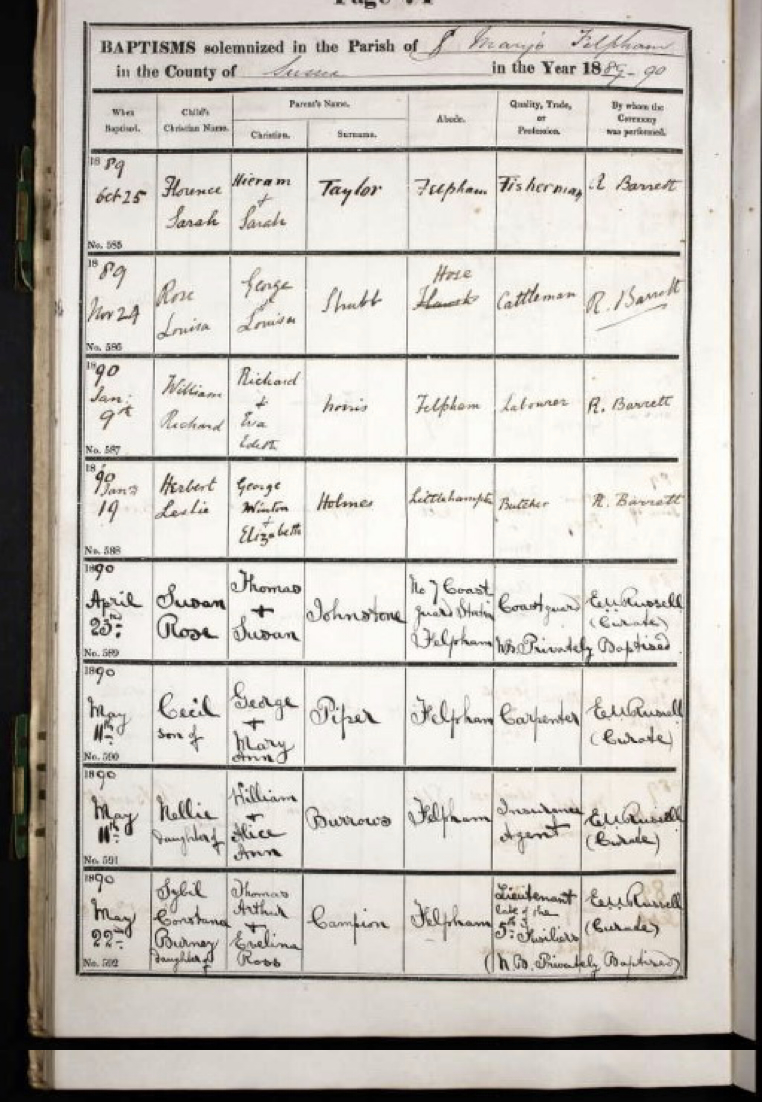 BAPTISMS solemnized in the Parish of St Mary's Felpham
in the County of Sussex in the Year 1889-90
When Baptised. Child's Christian Name. Parent's Name. Christian. Surname. Abode. Quality, Trade, or Profession. By whom the Ceremony was performed.
1889
Oct 25 Florence Sarah Hieram + Sarah Taylor Felpham Fisherman R Barrett
No. 585
1889
Nov 24 Rose Louisa George + Louisa Hoe Cattleman R. Barrett
No. 586
1890
Jan: 9th William Richard Richard + Eva Edith Norris Felpham Labourer R. Barrett
No. 587
1890
Jan 19 Herbert Leslie George Winton + Elizabeth Holmes Littlehampton Butcher R. Barrett
No. 588
1890
April 23rd Susan Rose Thomas + Susan Johnstone No 7 Coast guard Station Felpham Coastguard E W Russell (Curate)
NB. Privately Baptised
No. 589
1890
May 11th Cecil son of George + Mary Ann Piper Felpham Carpenter E W Russell (Curate)
No. 590
1890
May 11th Nellie daughter of William + Alice Ann Burrows Felpham Insurance Agent E W Russell (Curate)
No. 591
1890
May 22nd Sybil Constance Burney daughter of Thomas Arthur + Evelina Ross Campion Felpham Lieutenant late of the 5th Fusiliers E W Russell (Curate)
(N.B. Privately Baptised)
No. 592